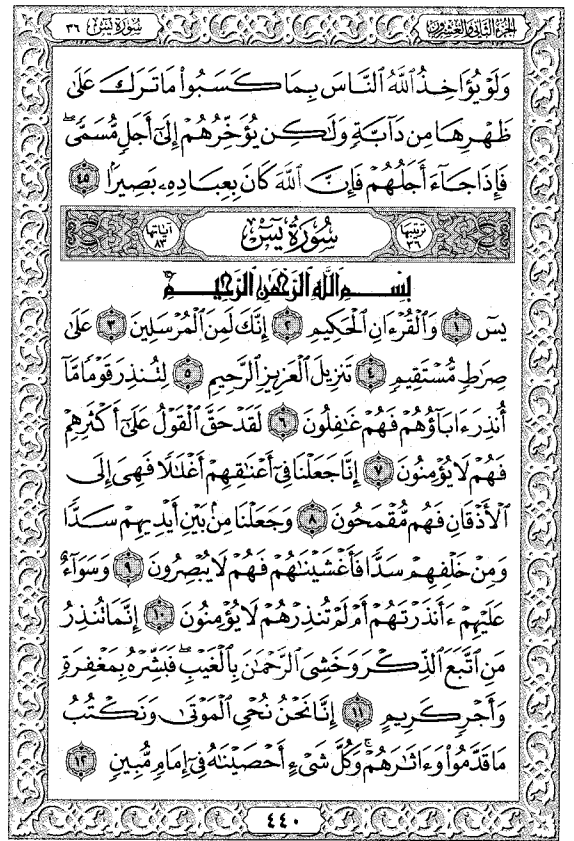 سورة يس ٣٦ الجزء الثاني والعشرون
وَلَوْ يُؤَاخِذُ ٱللَّهُ ٱلنَّاسَ بِمَا كَسَبُوا۟ مَا تَرَكَ عَلَىٰ
ظَهْرِهَا مِن دَآبَّةٍ وَلَٰكِن يُؤَخِّرُهُمْ إِلَىٰٓ أَجَلٍ مُّسَمًّى ۖ
فَإِذَا جَآءَ أَجَلُهُمْ فَإِنَّ ٱللَّهَ كَانَ بِعِبَادِهِۦ بَصِيرًۢا ٤٥
ترتيبها ٣٦ سُورَةُ يسٓ آياتها ٨٣
بِسْمِ ٱللَّهِ ٱلرَّحْمَٰنِ ٱلرَّحِيمِ
يسٓ ١ وَٱلْقُرْءَانِ ٱلْحَكِيمِ ٢ إِنَّكَ لَمِنَ ٱلْمُرْسَلِينَ ٣ عَلَىٰ
صِرَٰطٍ مُّسْتَقِيمٍ ٤ تَنزِيلَ ٱلْعَزِيزِ ٱلرَّحِيمِ ٥ لِتُنذِرَ قَوْمًا مَّآ
أُنذِرَ ءَابَآؤُهُمْ فَهُمْ غَٰفِلُونَ ٦ لَقَدْ حَقَّ ٱلْقَوْلُ عَلَىٰٓ أَكْثَرِهِمْ
فَهُمْ لَا يُؤْمِنُونَ ٧ إِنَّا جَعَلْنَا فِىٓ أَعْنَٰقِهِمْ أَغْلَٰلًا فَهِىَ إِلَى
ٱلْأَذْقَانِ فَهُم مُّقْمَحُونَ ٨ وَجَعَلْنَا مِنۢ بَيْنِ أَيْدِيهِمْ سَدًّا
وَمِنْ خَلْفِهِمْ سَدًّا فَأَغْشَيْنَٰهُمْ فَهُمْ لَا يُبْصِرُونَ ٩ وَسَوَآءٌ
عَلَيْهِمْ ءَأَنذَرْتَهُمْ أَمْ لَمْ تُنذِرْهُمْ لَا يُؤْمِنُونَ ١٠ إِنَّمَا تُنذِرُ
مَنِ ٱتَّبَعَ ٱلذِّكْرَ وَخَشِىَ ٱلرَّحْمَٰنَ بِٱلْغَيْبِ ۖ فَبَشِّرْهُ بِمَغْفِرَةٍ
وَأَجْرٍ كَرِيمٍ ١١ إِنَّا نَحْنُ نُحْىِ ٱلْمَوْتَىٰ وَنَكْتُبُ
مَا قَدَّمُوا۟ وَءَاثَٰرَهُمْ ۚ وَكُلَّ شَىْءٍ أَحْصَيْنَٰهُ فِىٓ إِمَامٍ مُّبِينٍ ١٢
٤٤٠